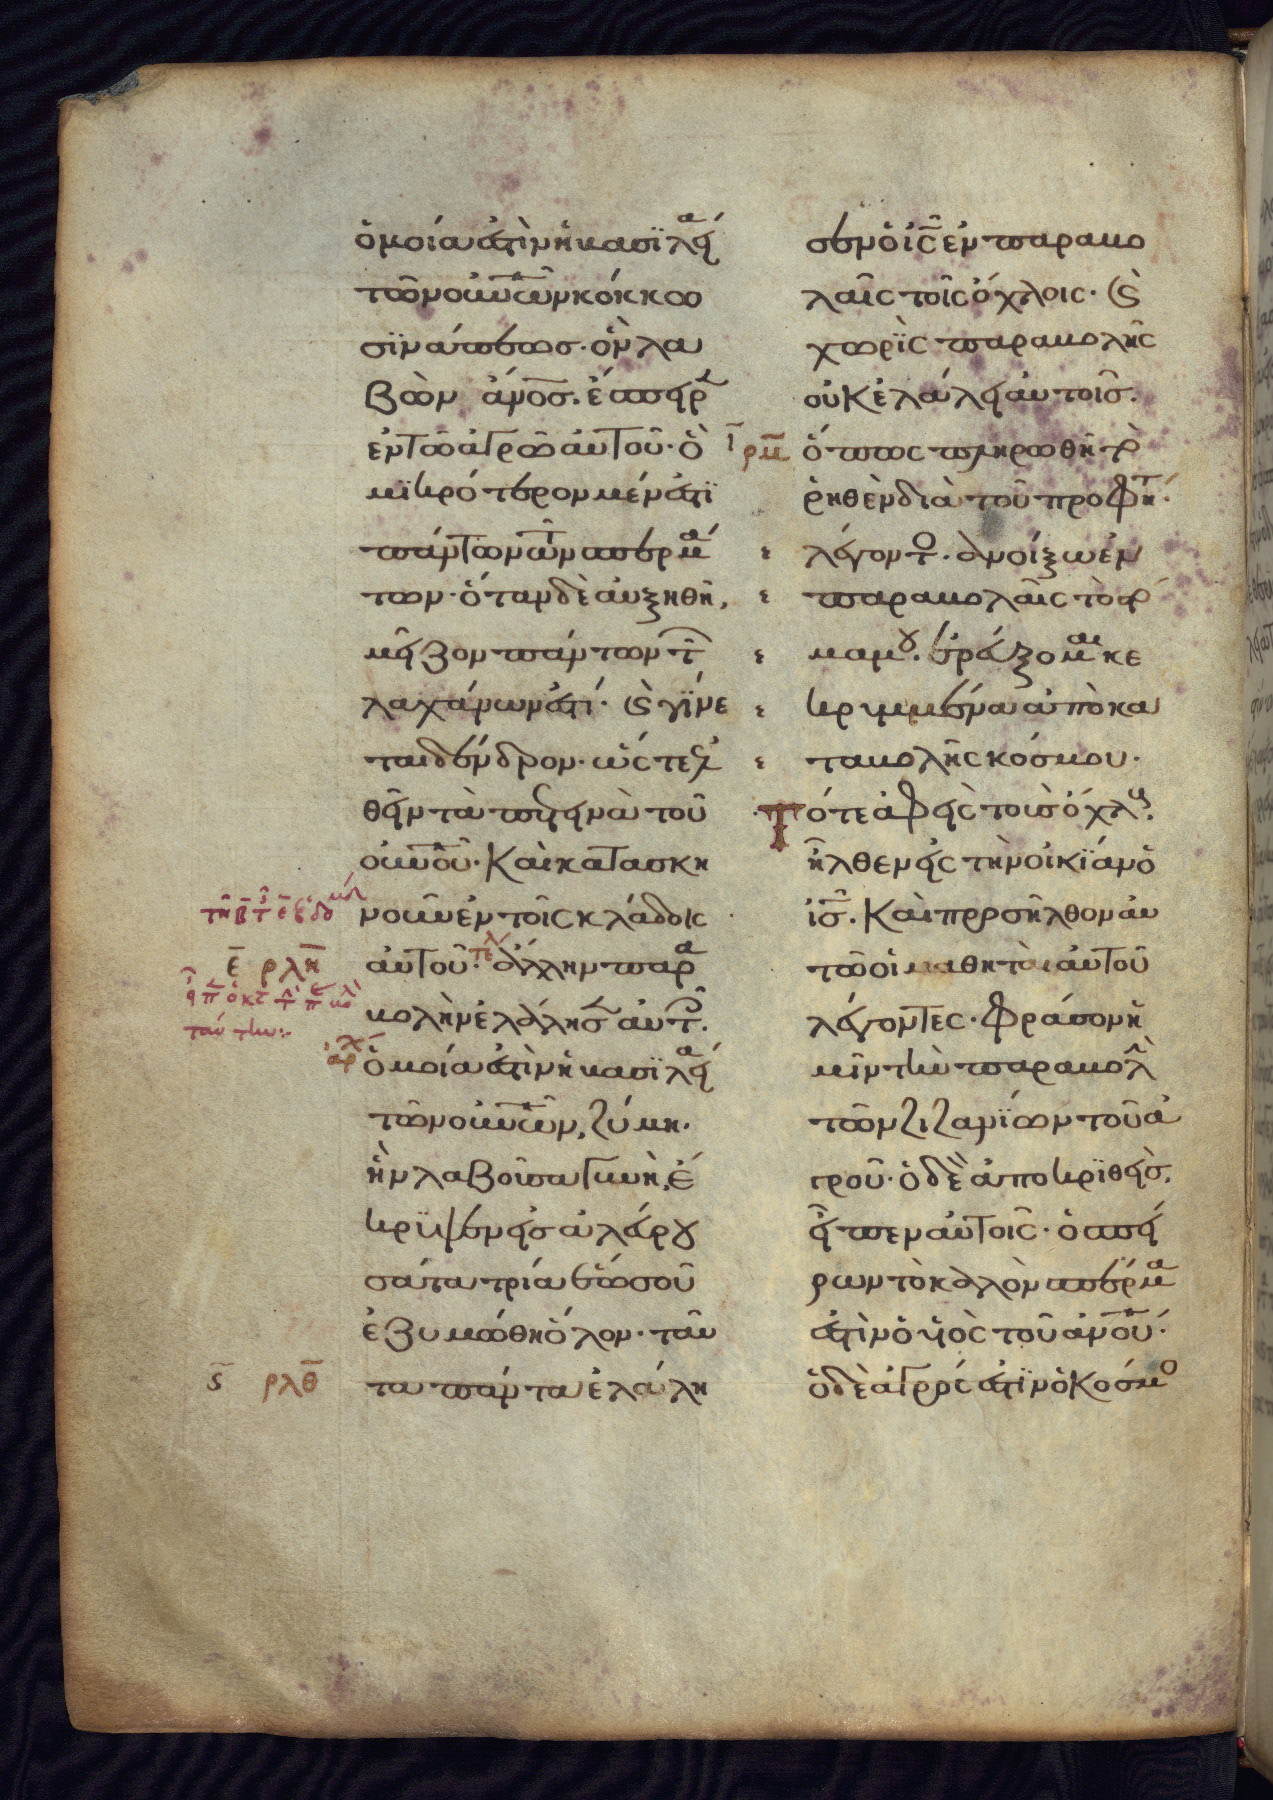 ὁμοία ἐστὶν ἡ βασϊλεί
τῶν οὐνῶν κόκκω
σϊνάπεως· ὃν λα
βὼν ἄνος. ἔσπειρ
ἐν τῶ ἀγρῶ αὐτοῦ· ὃ
μϊκρότερον μέν ἐστϊ
πάντων τῶν σπερμά
των· ὅταν δὲ αὐξηθῆ,
μεῖζον πάντων τῶ
λαχάνων ἐστί· καὶ γίνε
ται δένδρον· ὥστε ἐλ
θεῖν τὰ πετεινὰ τοῦ
οὐνοῦ· Καὶ κατασκη
νοῦν ἐν τοῖς κλάδοις
αὐτοῦ· ἄλλην παρα
βολὴν ἐλάλησεν αὐτοῖς.
ὁμοία ἐστὶν ἡ βασϊλεί
τῶν οὐνῶν, ζύμη·
ἣν λαβοῦσα γυνὴ, ἐ
κρϊψεν εἰς ἀλεύρου
σάτα τρία ἕως οὗ
ἐζυμώθη ὅλον· ταῦ
τα πάντα ἐλάλη
σεν ὁ ις ἐν παραβο
λαῖς τοῖς ὄχλοις· καὶ
χωρϊς παραβολῆς
οὐκ ἐλάλει αὐτοῖς.
ὅπως πληρωθῆ τὸ
ῥηθὲν διὰ τοῦ προφή
λέγοντος· ἀνοίξω ἐν
παραβολαῖς τὸ στό
μα μου. ἐρεύξομαι κε
κρυμμένα ἀπὸ κα
ταβολῆς κόσμου·
Τότε ἀφεὶς τοὺς ὄχλους
ἦλθεν εἰς τὴν οἰκϊαν ὁ
ις. Καὶ προσῆλθον αὐ
τῶ οἱ μαθηταὶ αὐτοῦ
λέγοντες· φράσον ἡ
μῖν τὴν παραβολὴν
τῶν ζιζανϊων τοῦ ἀ
γροῦ· ὁ δὲ ἀποκρϊθεὶς,
εἶπεν αὐτοῖς· ὁ σπεί
ρων τὸ καλὸν σπέρμα
ἐστὶν ὁ υἱὸς τοῦ ἀνου·
ὁ δὲ ἀγρός ἐστϊν ὁ κόσμο
ε ρλη
ς ρλθ
ι ρμ